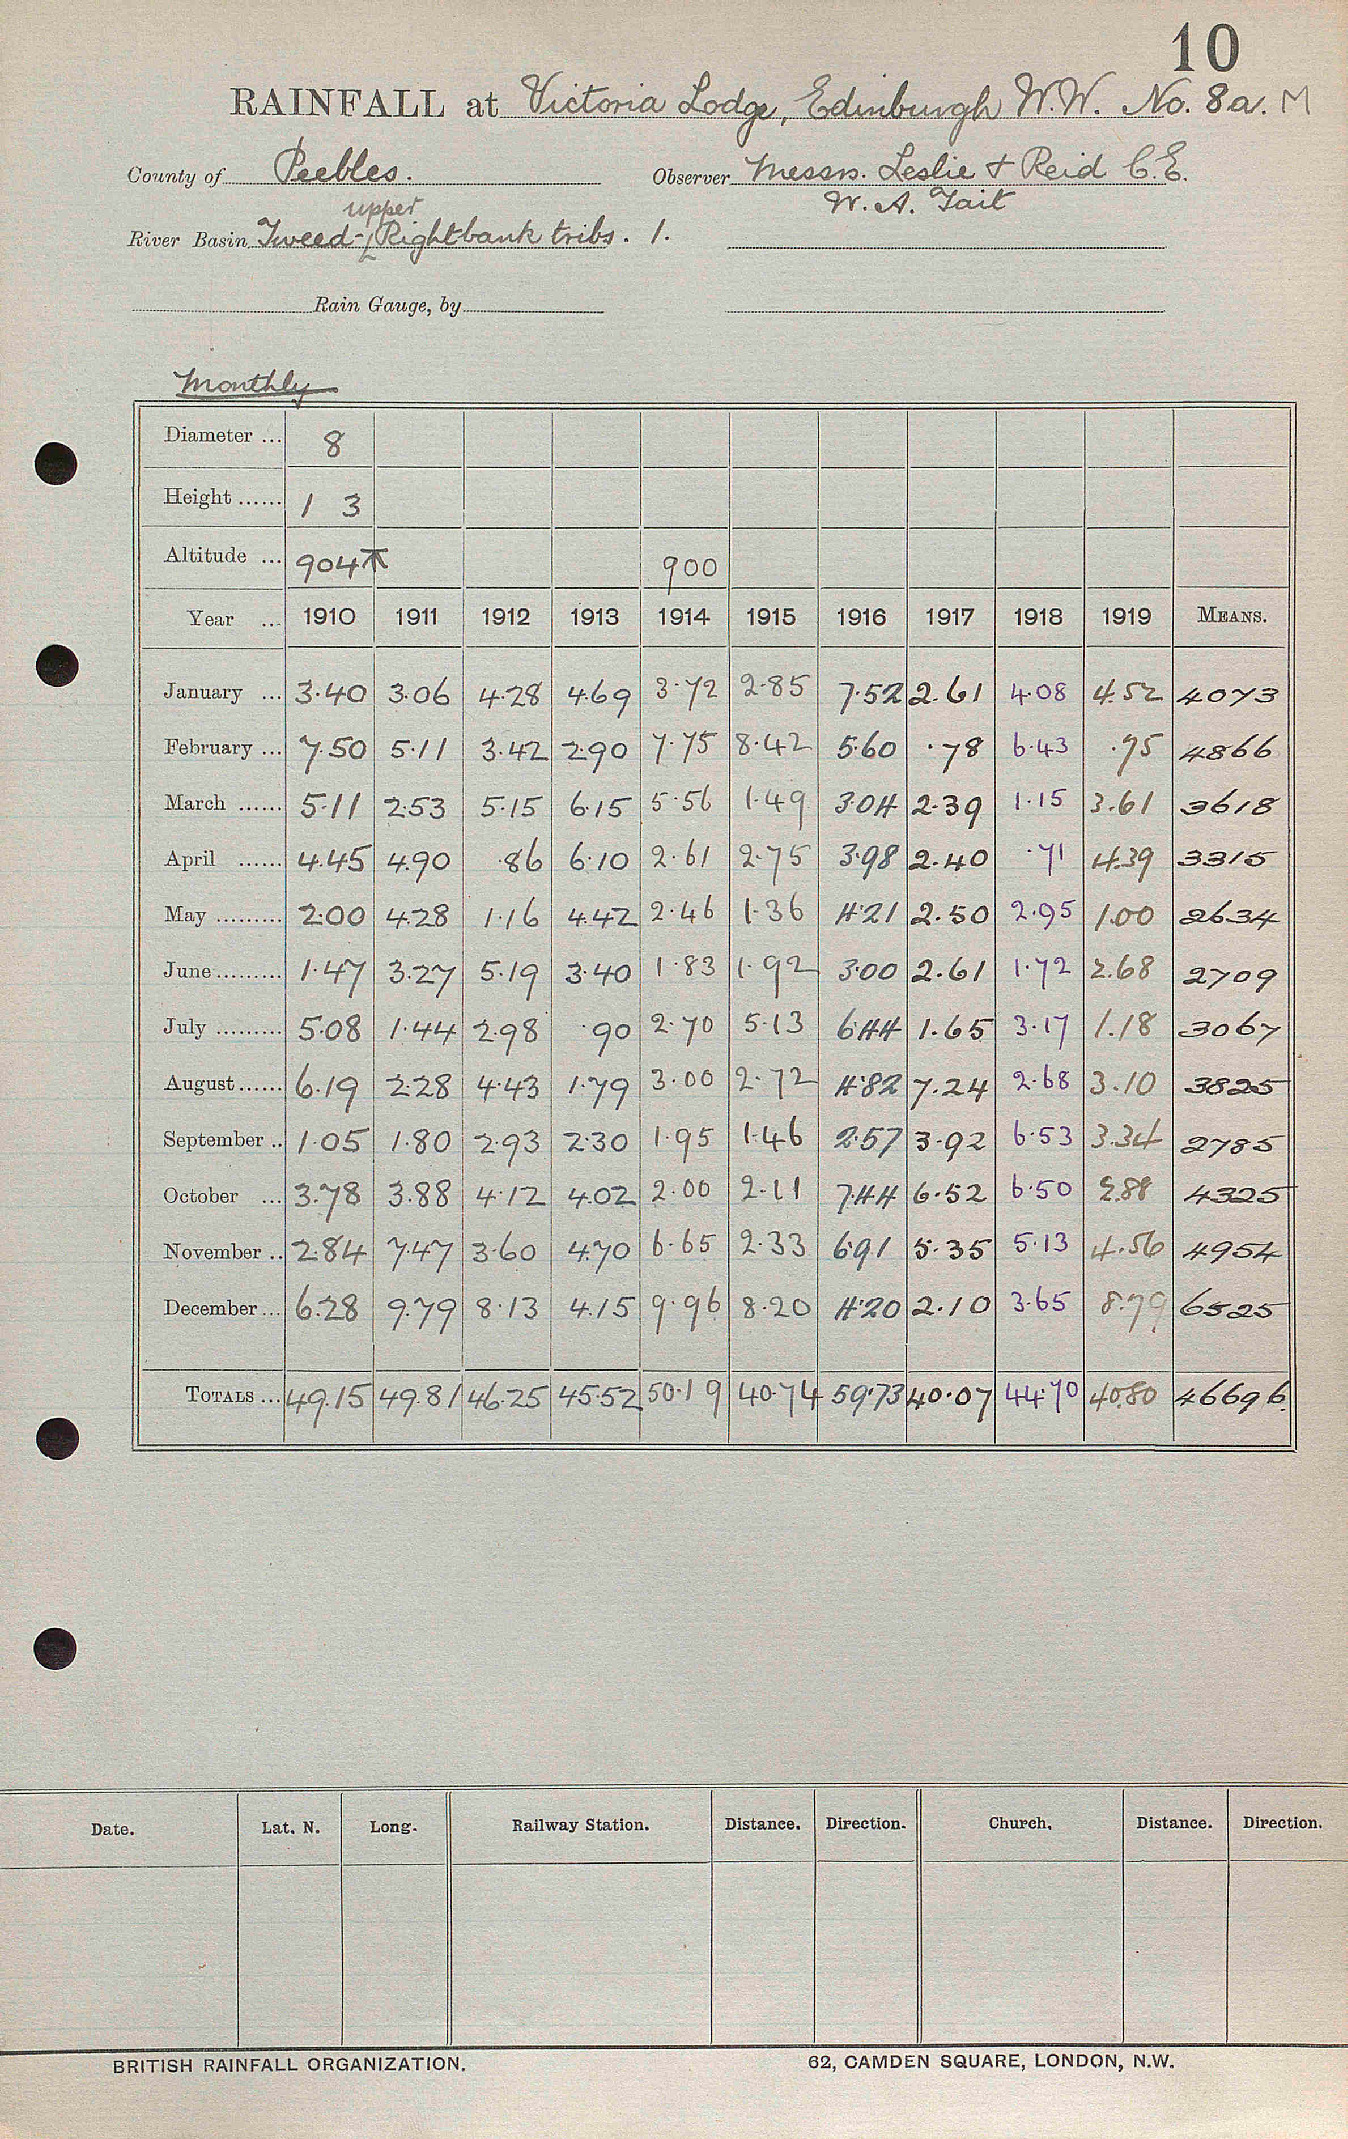 10
RAINFALL at Victoria Lodge, Edinburgh W.W. No. 8a. M
County of Peebles. Observer Messrs. Leslie & Reid C.E.
W. A. Tait
upper
River Basin Tweed - Right bank tribs. 1.
Rain Gauge, by
Monthly
Diameter ... 8
Height ...... 1 3
Altitude ... 904 900
Year ... 1910 1911 1912 1913 1914 1915 1916 1917 1918 1919 MEANS.
January ... 3.40 3.06 4.28 4.69 3.72 2.85 7.52 2.61 4.08 4.52 4073
February ... 7.50 5.11 3.42 2.90 7.75 8.42 5.60 .78 6.43 .75 4866
March ...... 5.11 2.53 5.15 6.15 5.56 1.49 3.04 2.39 1.15 3.61 3618
April ...... 4.45 4.90 .86 6.10 2.61 2.75 3.98 2.40 .71 4.39 3315
May ......... 2.00 4.28 1.16 4.42 2.46 1.36 4.21 2.50 2.95 1.00 2634
June ......... 1.47 3.27 5.19 3.40 1.83 1.92 3.00 2.61 1.72 2.68 2709
July ......... 5.08 1.44 2.98 .90 2.70 5.13 6.44 1.65 3.17 1.18 3067
August ...... 6.19 2.28 4.43 1.79 3.00 2.72 4.82 7.24 2.68 3.10 3825
September .. 1.05 1.80 2.93 2.30 1.95 1.46 2.57 3.92 6.53 3.34 2785
October ... 3.78 3.88 4.12 4.02 2.00 2.11 7.44 6.52 6.50 2.88 4325
November .. 2.84 7.47 3.60 4.70 6.65 2.33 6.91 5.35 5.13 4.56 4954
December ... 6.28 9.79 8.13 4.15 9.96 8.20 4.20 2.10 3.65 8.79 6525
TOTALS ... 49.15 49.81 46.25 45.52 50.19 40.74 59.73 40.07 44.70 40.80 46696
Date. Lat. N. Long. Railway Station. Distance. Direction. Church. Distance. Direction.
BRITISH RAINFALL ORGANIZATION. 62, CAMDEN SQUARE, LONDON, N.W.